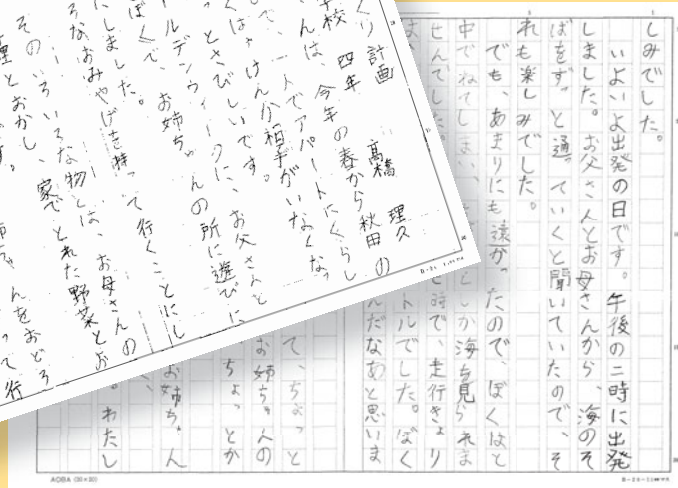 くり計画
学校 四年 高橋 理久
んは、今年の春から秋田の
で、一人でアパートにくらし
くは、けんか相手がいなくなっ
っとさびしいです。
ルデンウィークに、お父さんと
ぼくで、お姉ちゃんの所に遊びに
にしました。
ろなおみやげを持って行くことにし
そのいろいろな物とは、お母さんの
とおかし、家でとれた野菜とお
しみでした。
いよいよ出発の日です。午後の二時に出発
しました。お父さんとお母さんから、海のそ
ばをずっと通っていくと聞いていたので、そ
れも楽しみでした。
でも、あまりにも遠かったので、ぼくはと
中でねてしまい、
しか海を見られま
せんでした。
時で、走行きょり
トルでした。ぼく
んだなあと思いま
て、ちょっと
お姉ちゃんの
ちょっとか
お姉ちゃん
。わたし
AOBA (20×20)